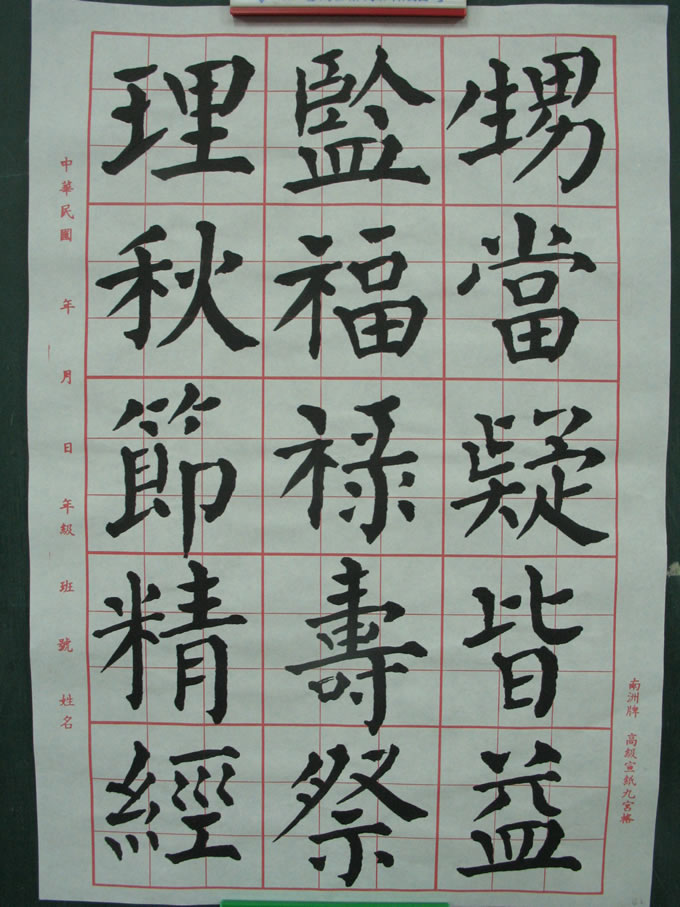 甥當疑皆益
監福祿壽祭
理秋節精經
中華民國 年 月 日 年級 班 號 姓名
南洲牌 高級宣紙九宮格